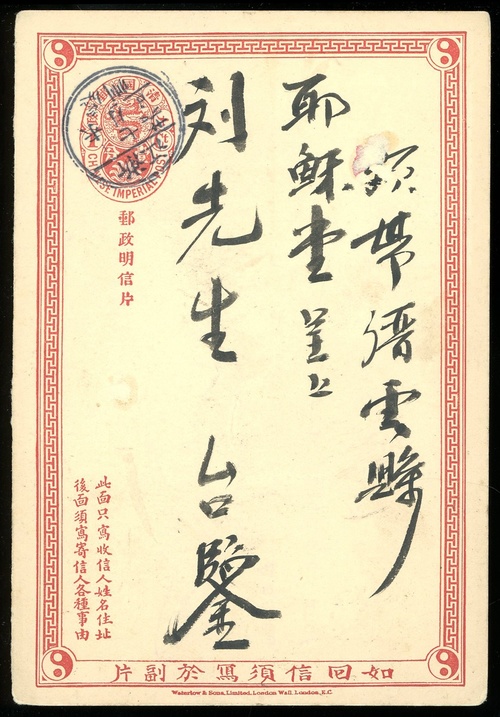 烦帶缙雲縣
耶穌堂呈上
刘先生 台鑒
CHINESE IMPERIAL POST
郵政明信片
此面只寫收信人姓名住址
後面須寫寄信人各種事由
如回信須寫於副片
Waterlow & Sons, Limited, London Wall, London, E.C.